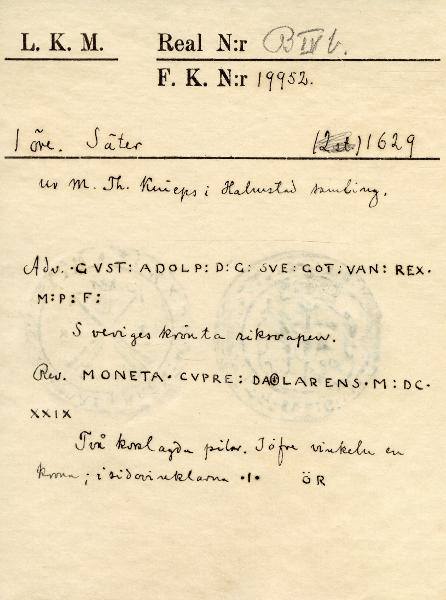 L. K. M. Real N:r B IV b.
F. K. N:r 19952.
1 öre. Säter (2 st) 1629
ur M. Th. Knieps i Halmstad samling.
Adv. ·GVST: ADOLP: D: G: SVE: GOT: VAN: REX·
M: P: F:
Sveriges krönta riksvapen.
Rev. MONETA· CVPRE: DALARENS· M: DC·
XXIX
Två korslagda pilar. I öfre vinkeln en
krona; i sidovinklarna ·1· ÖR